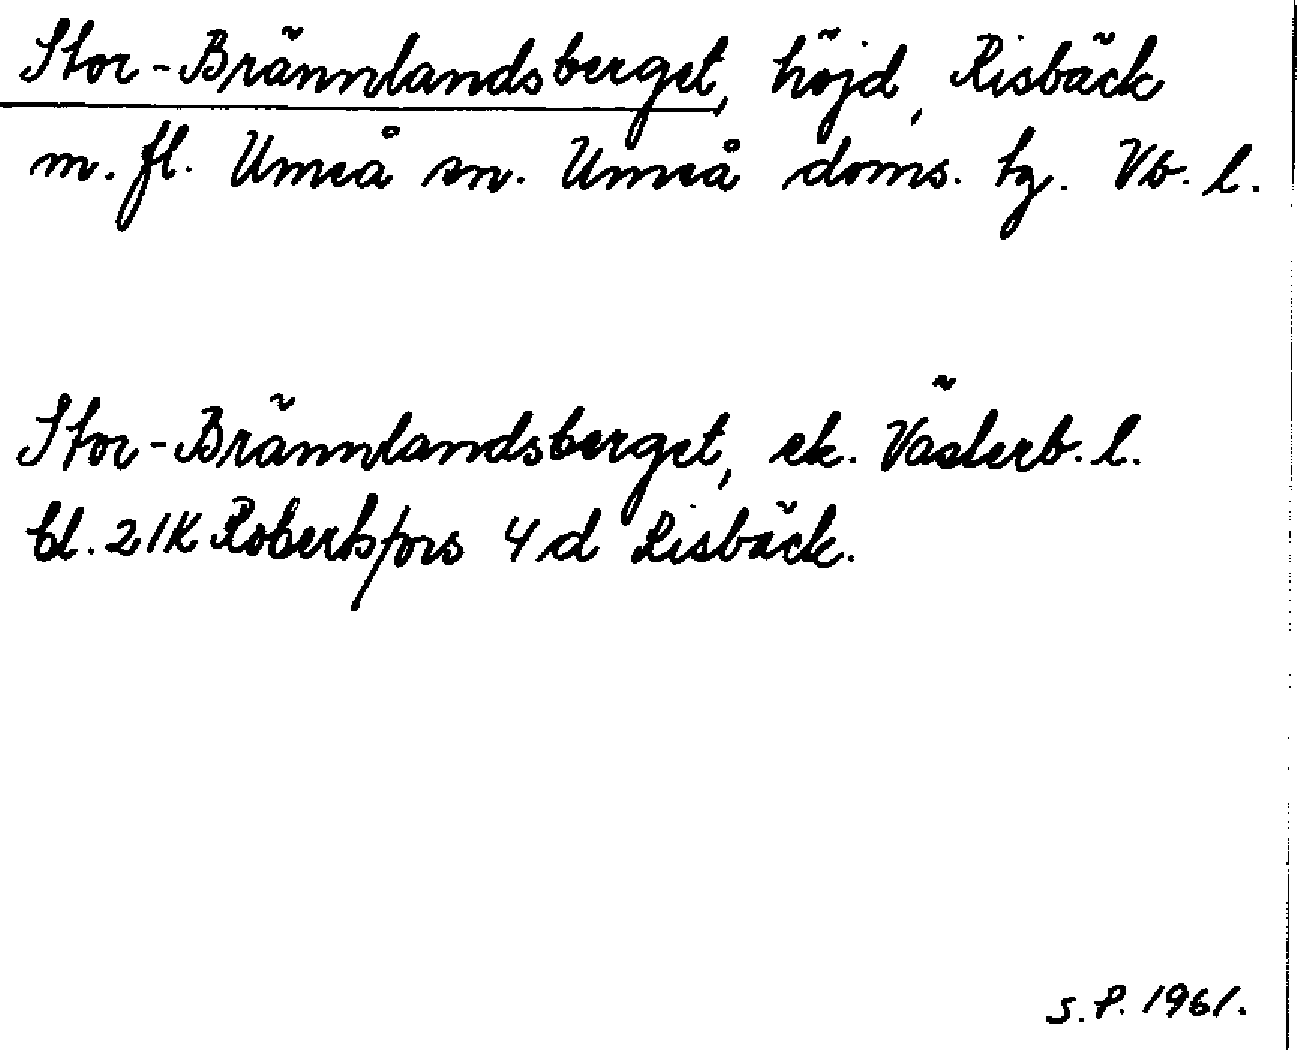 Stor-Brännlandsberget, höjd, Risbäck
m. fl. Umeå sn. Umeå doms. tg. Vb. l.
Stor-Brännlandsberget, ek. Västerb. l.
bl. 21K Robertsfors 4d Risbäck.
S. P. 1961.